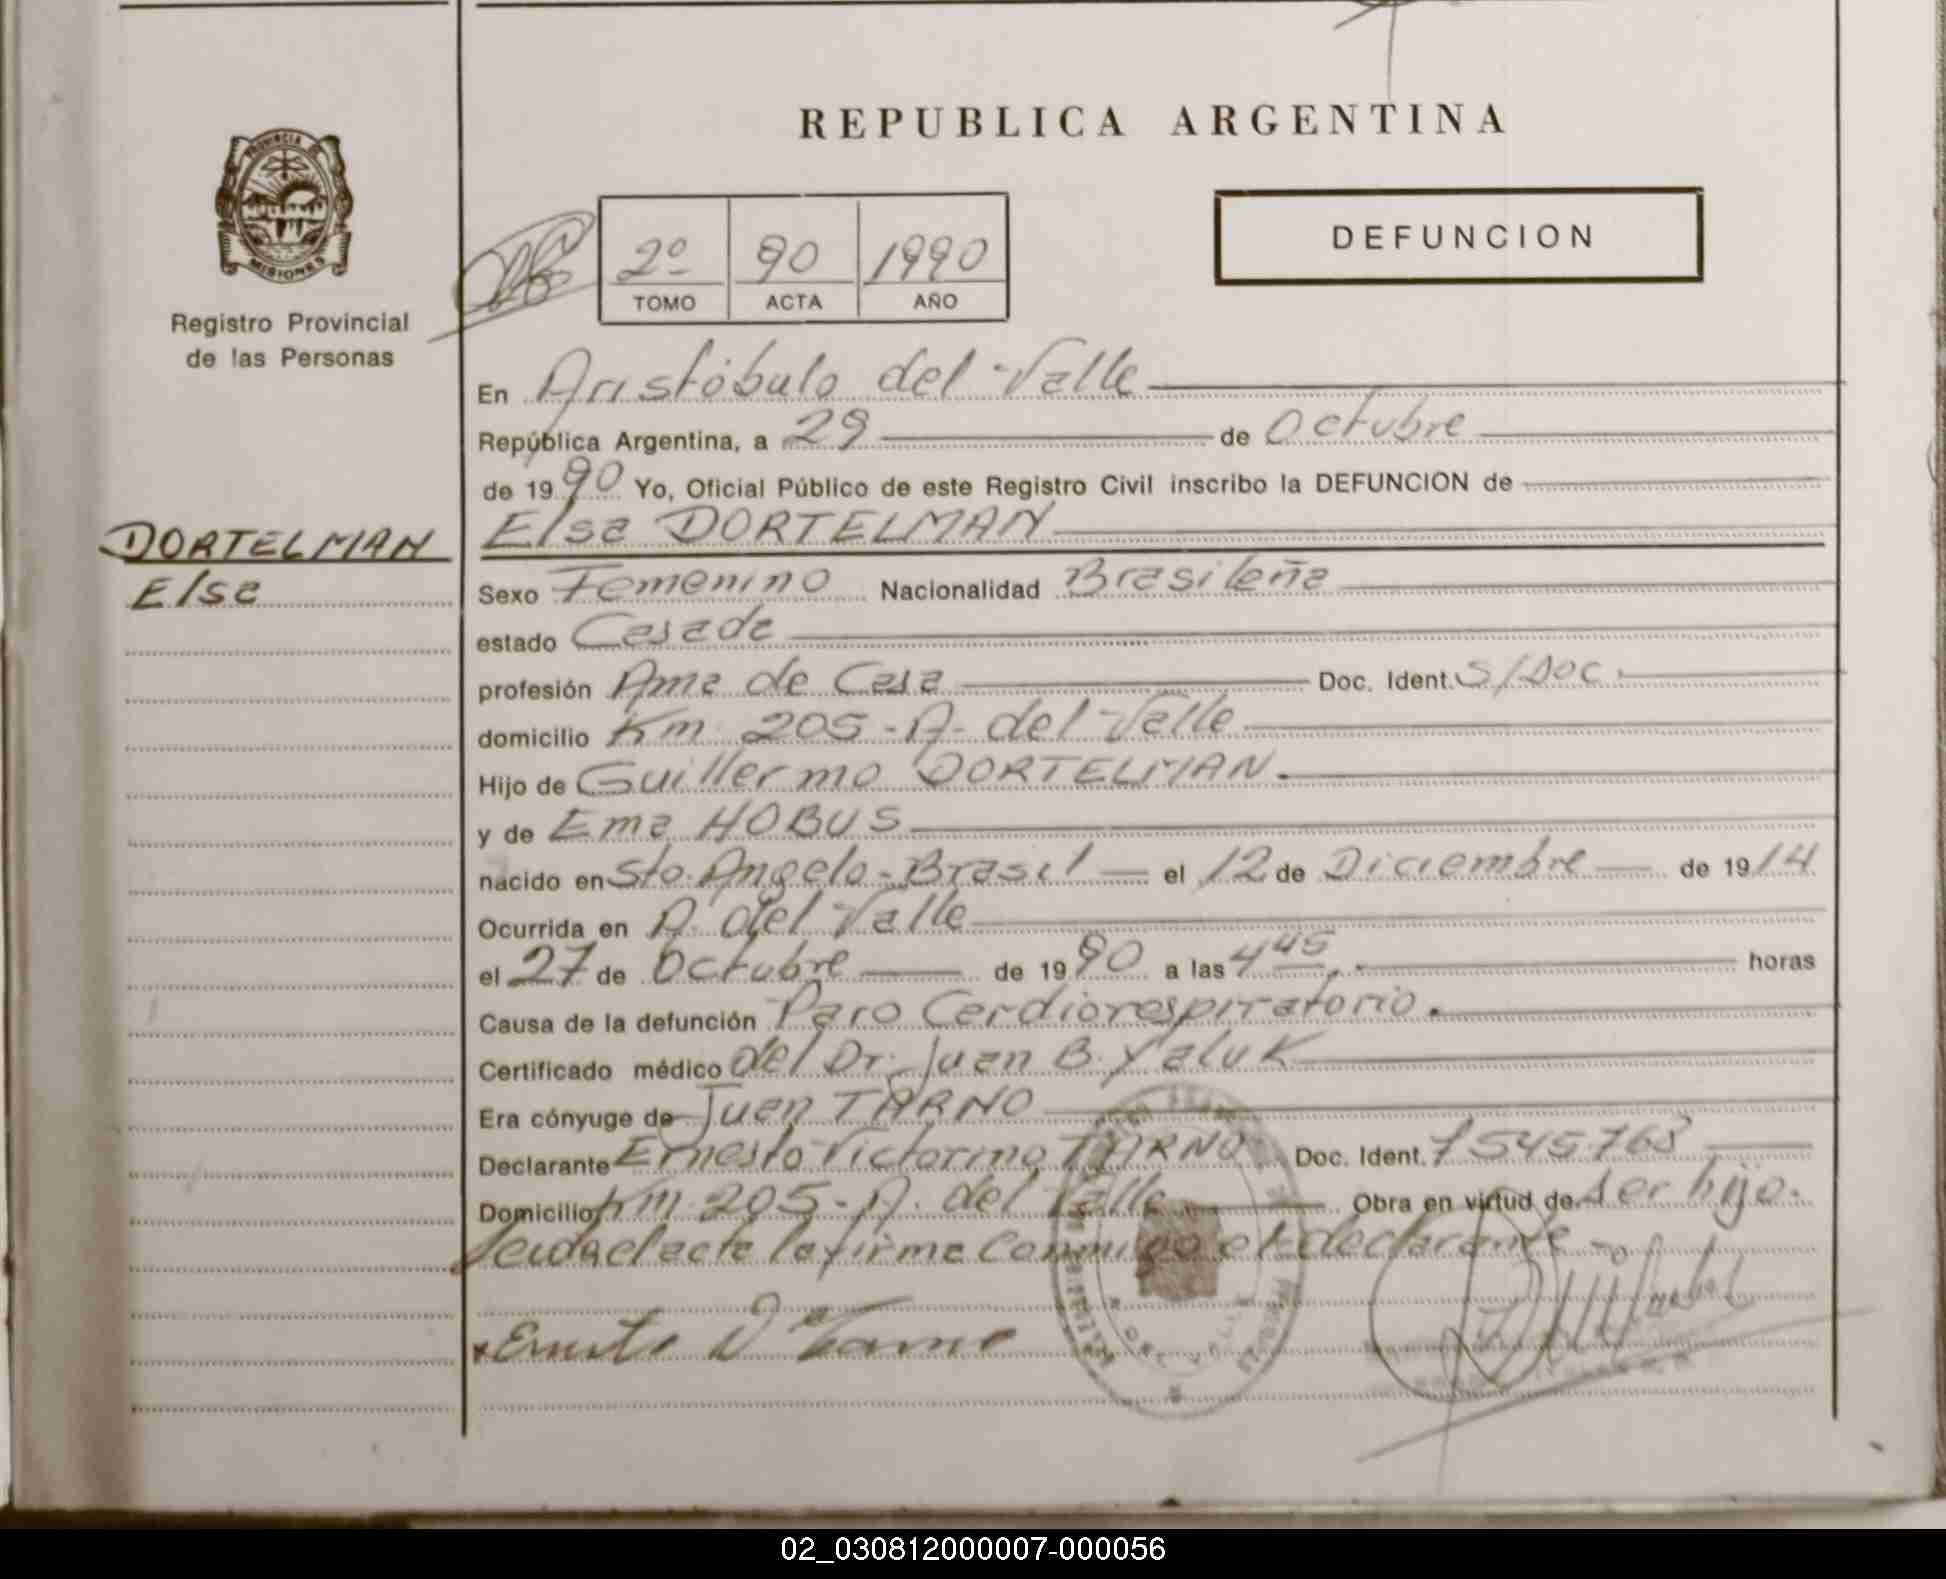 REPUBLICA ARGENTINA
PROVINCIA DE
MISIONES
Registro Provincial
de las Personas
2º 90 1990
TOMO ACTA AÑO
DEFUNCION
En Aristóbulo del Valle
República Argentina, a 29 de Octubre
de 1990 Yo, Oficial Público de este Registro Civil inscribo la DEFUNCION de
DORTELMAN
Elsa
Elsa DORTELMAN
Sexo Femenino Nacionalidad Brasileña
estado Casada
profesión Ama de Casa Doc. Ident. S/Doc.
domicilio Km. 205 - A. del Valle
Hijo de Guillermo DORTELMAN.
y de Ema HOBUS
nacido en Sto. Angelo - Brasil el 12 de Diciembre de 1914
Ocurrida en A. del Valle
el 27 de Octubre de 1990 a las 4 45 horas
Causa de la defunción Paro Cardiorespiratorio.
Certificado médico del Dr. Juan B. Yaluk
Era cónyuge de Juan TARNO
Declarante Ernesto Victorino TARNO Doc. Ident. 7.545.763
Domicilio Km. 205 - A. del Valle Obra en virtud de ser hijo.
Leida el acta la firma conmigo el declarante
02_030812000007-000056